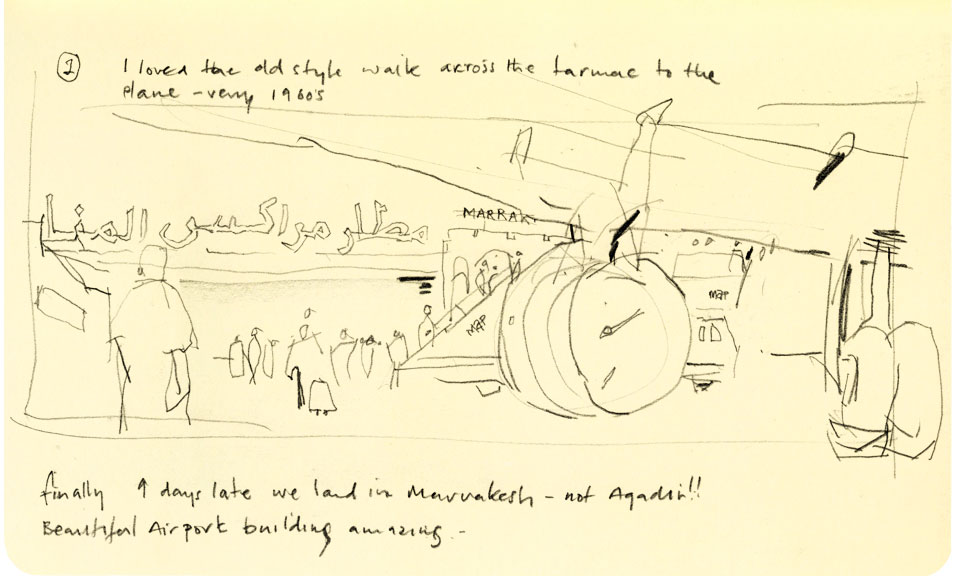 1
I loved the old style walk across the tarmac to the
plane - very 1960's
مطار مراكش المنا
MARRAK
MAP
MAP
finally 9 days late we land in Marrakesh - not Agadir!!
Beautiful Airport building amazing -